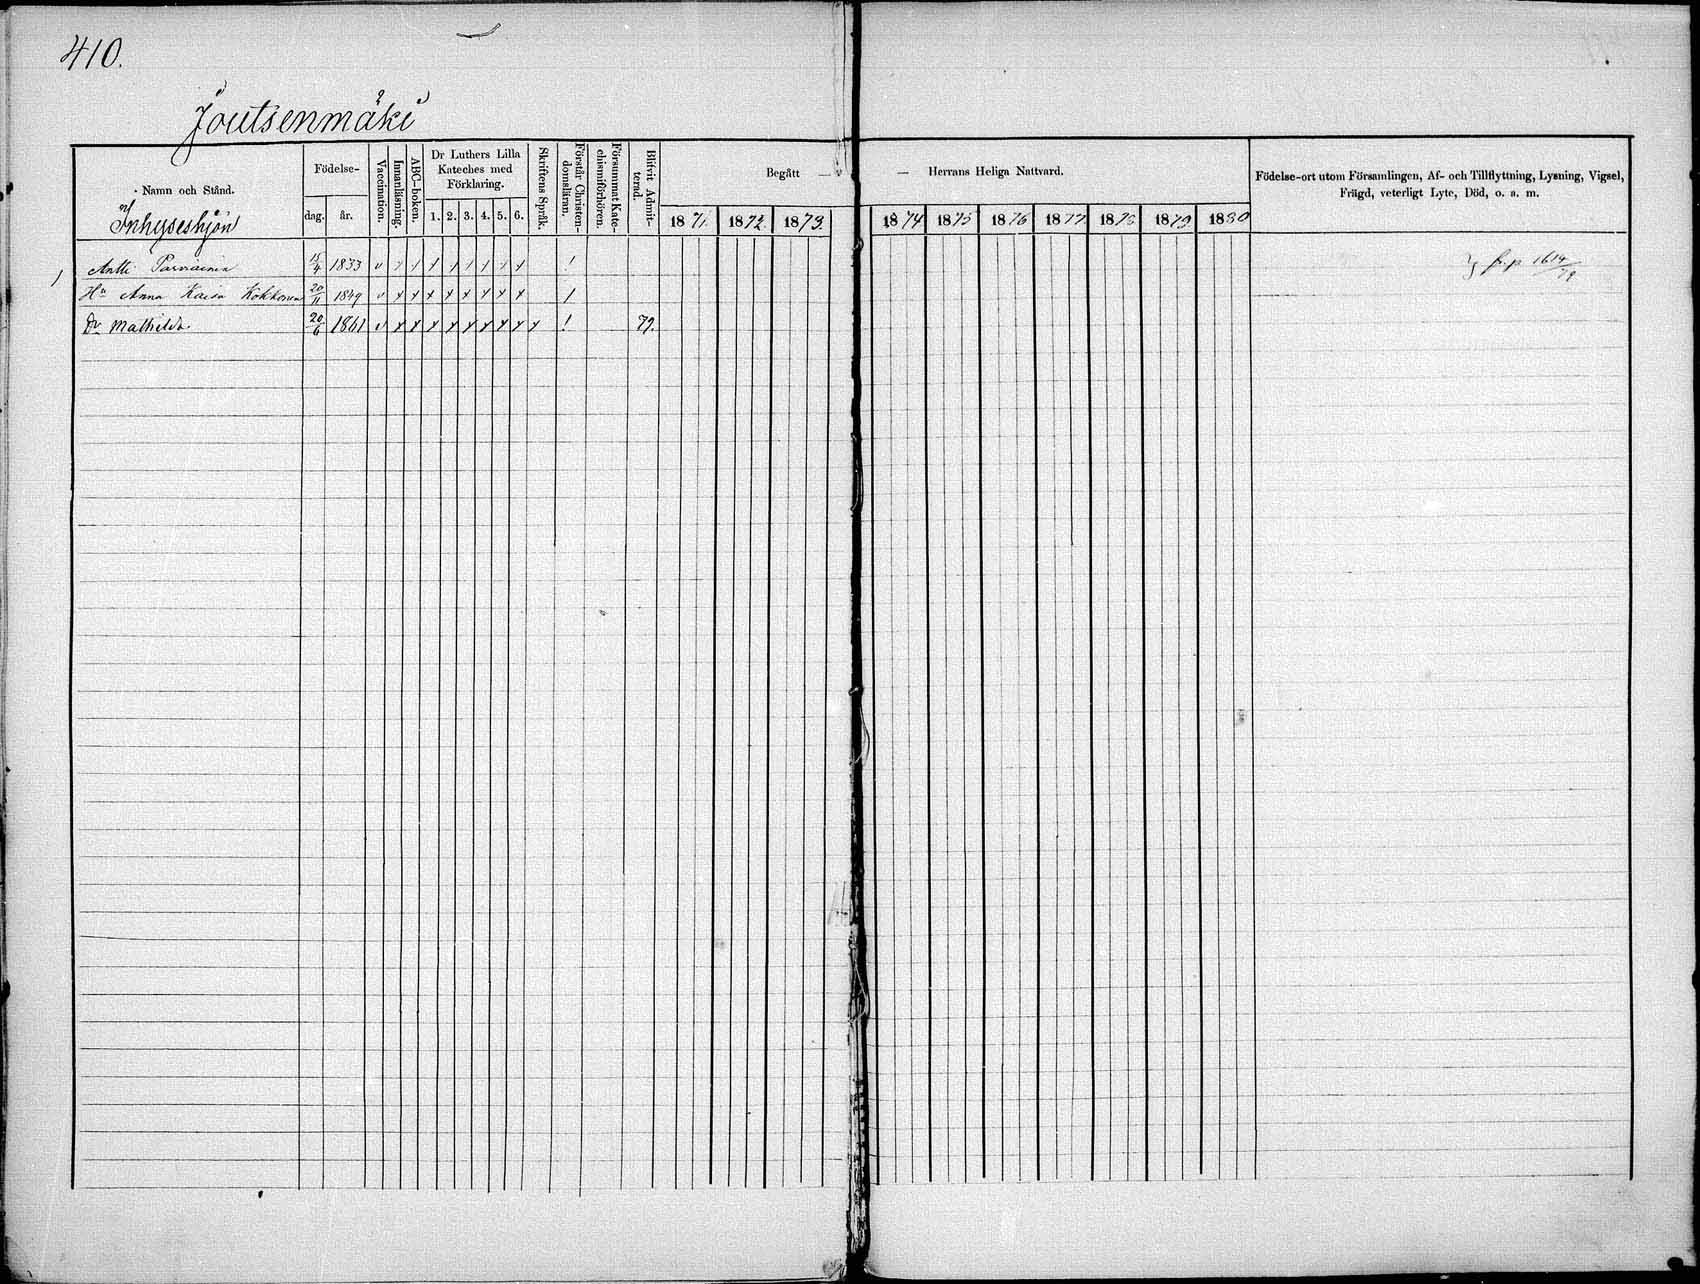 410.
Joutsenmäki
Namn och Stånd.
Födelse-
dag.
år.
Vaccination.
Innanläsning.
ABC-boken.
Dr Luthers Lilla Kateches med Förklaring.
1. 2. 3. 4. 5. 6.
Skriftens Språk.
Förstår Christendomsläran.
Försummat Katechismiförhören.
Blifvit Admitterad.
Begått — — Herrans Heliga Nattvard.
1871. 1872. 1873. 1874 1875 1876 1877 1878 1879 1880
Födelse-ort utom Församlingen, Af- och Tillflyttning, Lysning, Vigsel,
Frägd, veterligt Lyte, Död, o. a. m.
Inhyseshjon
Antti Parviainen 15/4 1833 fr. p 1614/79
Hu Anna Kaisa Kokkonen 20/11 1849
Dr Mathilda 20/6 1861 79.